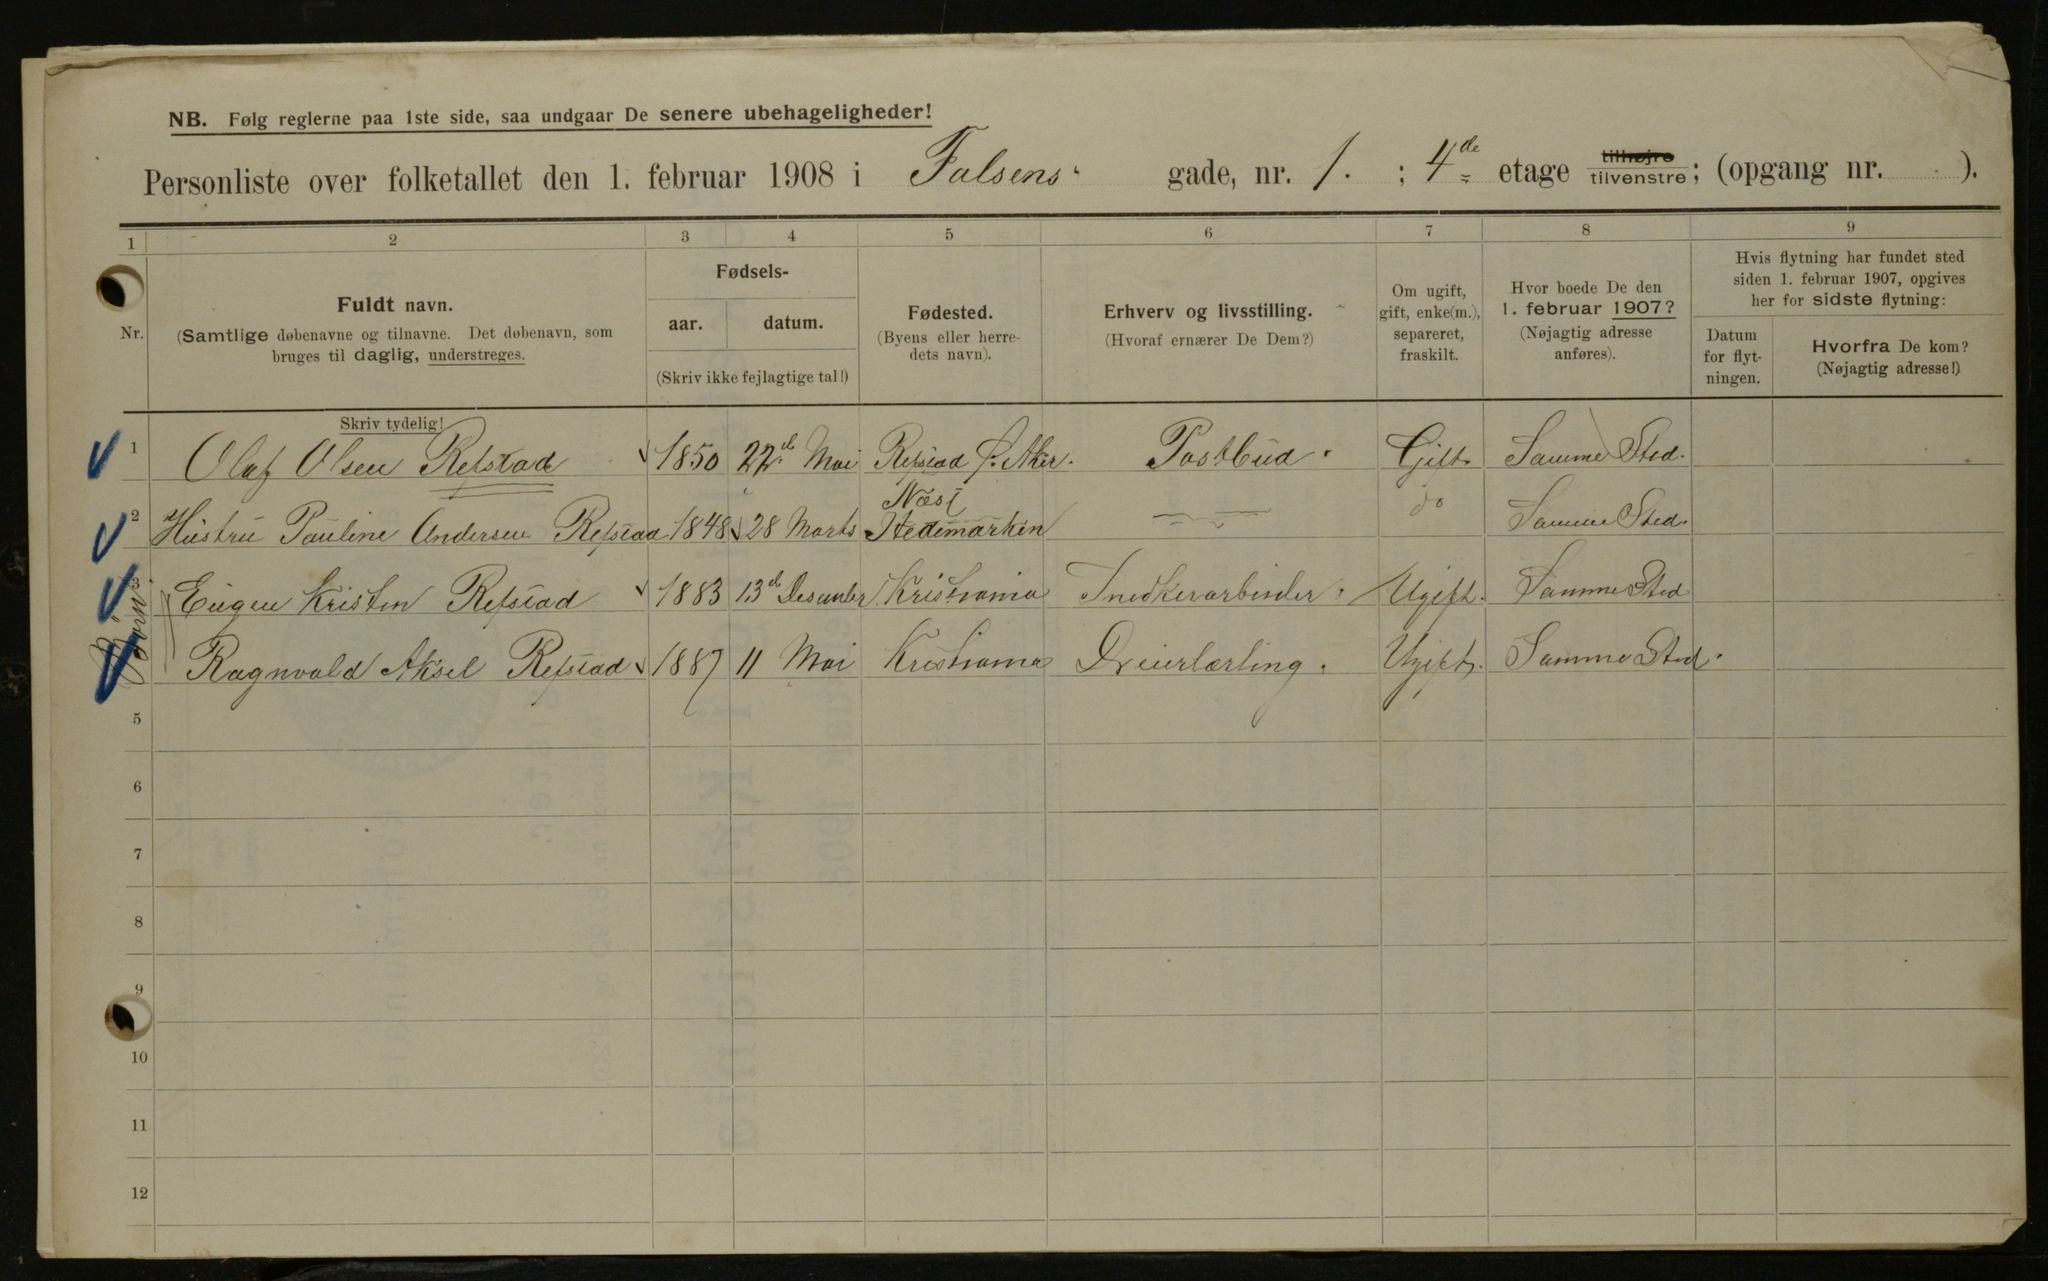 NB. Følg reglerne paa 1ste side, saa undgaar De senere ubehageligheder!
Personliste over folketallet den 1. februar 1908 i Falsens gade, nr. 1. ; 4de etage tilhøjre tilvenstre; (opgang nr. ).
1 2 3 4 5 6 7 8 9
Nr.
Fuldt navn.
(Samtlige døbenavne og tilnavne. Det døbenavn, som
bruges til daglig, understreges.
Skriv tydelig!
Fødsels-
aar. datum.
(Skriv ikke fejlagtige tal!)
Fødested.
(Byens eller herre-
dets navn).
Erhverv og livsstilling.
(Hvoraf ernærer De Dem?)
Om ugift,
gift, enke(m.),
separeret,
fraskilt.
Hvor boede De den
1. februar 1907?
(Nøjagtig adresse
anføres).
Hvis flytning har fundet sted
siden 1. februar 1907, opgives
her for sidste flytning:
Datum
for flyt-
ningen.
Hvorfra De kom?
(Nøjagtig adresse!)
1 Olaf Olsen Refstad 1850 22d Mai Refstad Ø. Aker. Postbud. Gift. Samme Sted.
2 Hustru Pauline Andersen Refstad 1848 28 Marts Næs Hedemarken do Samme Sted.
Børn.
3 Eugen Kristen Refstad 1883 13d Desember Kristiania Snedkerarbeider. Ugift. Samme Sted
Ragnvald Aksel Refstad 1887 11 Mai Kristiania Dreierlærling. Ugift. Samme Sted.
5
6
7
8
9
10
11
12